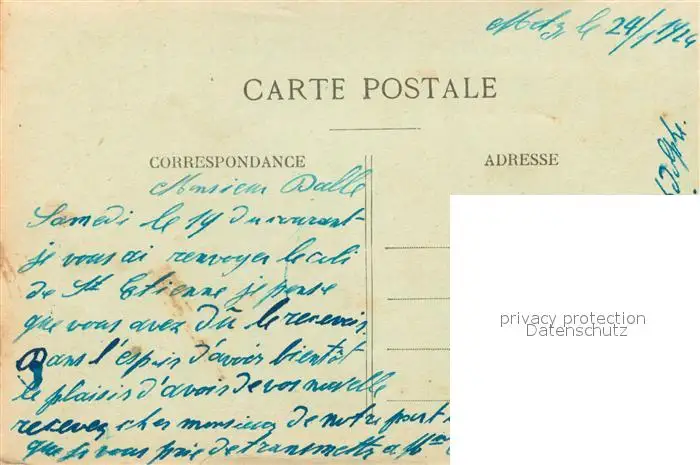 Metz le 24/1 1924
CARTE POSTALE
CORRESPONDANCE
ADRESSE
Monsieur Dalle
Samedi le 19 du courant
je vous ai renvoyer le coli
de St Etienne je pense
que vous avez dû le recevoir
Dans l'espoir d'avoir bientôt
le plaisir d'avoir de vos nouvelle
recevez cher monsieur de notre part
que je vous prie de transmettre a Mme
privacy protection
Datenschutz